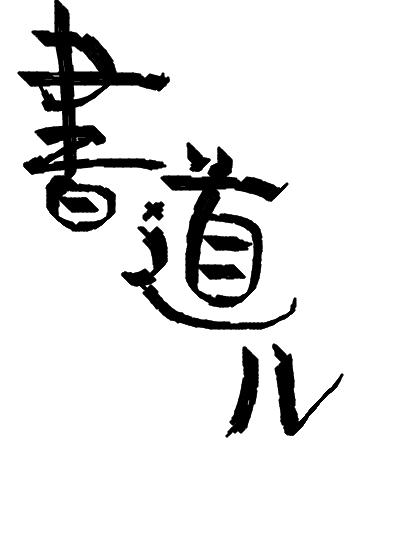 書道ル